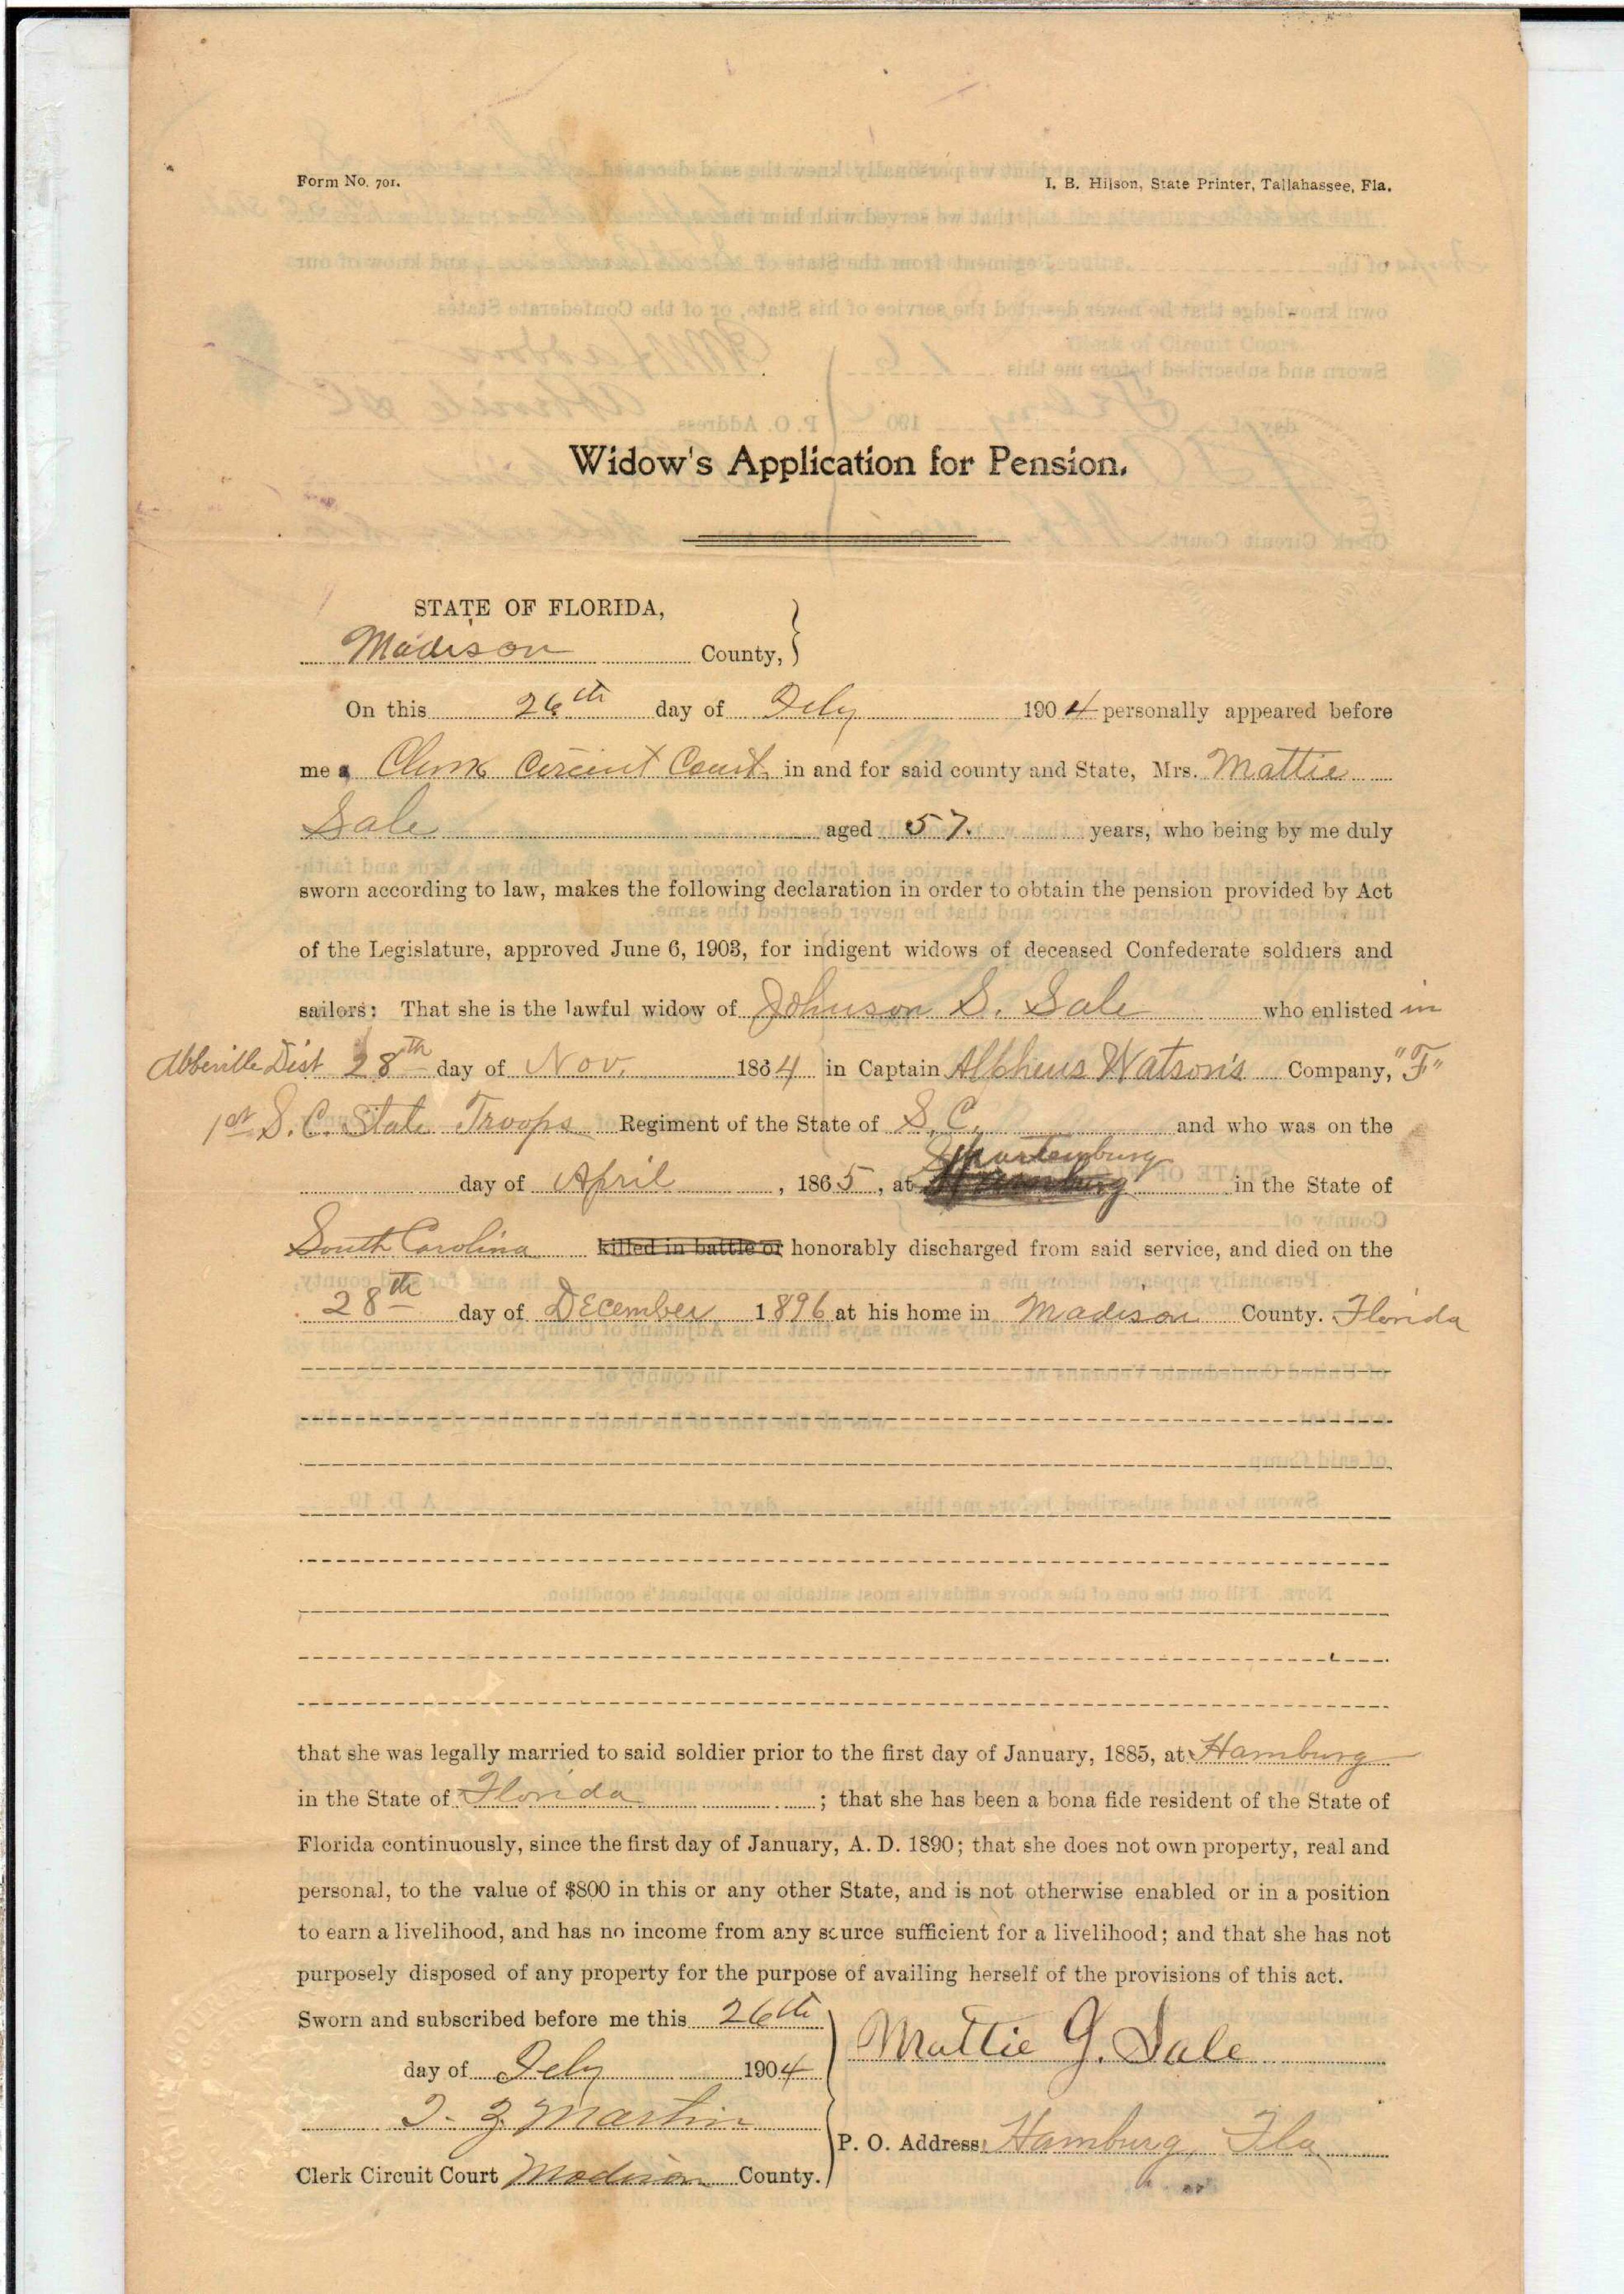 Form No. 701.
I. B. Hilson, State Printer, Tallahassee, Fla.
Widow's Application for Pension.
STATE OF FLORIDA,
Madison County,
On this 26th day of Feby 1904 personally appeared before
me a Clerk Circuit Court in and for said county and State, Mrs. Mattie
Sale aged 57. years, who being by me duly
sworn according to law, makes the following declaration in order to obtain the pension provided by Act
of the Legislature, approved June 6, 1903, for indigent widows of deceased Confederate soldiers and
sailors: That she is the lawful widow of Johnson S. Sale who enlisted in
Abbeville Dist 28th day of Nov. 1864 in Captain Alpheus Watson's Company, "F"
1st S. C. State Troops Regiment of the State of S. C. and who was on the
Spartenburg
day of April, 1865, at in the State of
South Carolina killed in battle or honorably discharged from said service, and died on the
28th day of December 1896 at his home in Madison County. Florida
that she was legally married to said soldier prior to the first day of January, 1885, at Hamburg
in the State of Florida; that she has been a bona fide resident of the State of
Florida continuously, since the first day of January, A. D. 1890; that she does not own property, real and
personal, to the value of $800 in this or any other State, and is not otherwise enabled or in a position
to earn a livelihood, and has no income from any source sufficient for a livelihood; and that she has not
purposely disposed of any property for the purpose of availing herself of the provisions of this act.
Sworn and subscribed before me this 26th
Mattie G. Sale
day of Feby 1904
Martin
P. O. Address: Hamburg, Fla
Clerk Circuit Court Madison County.